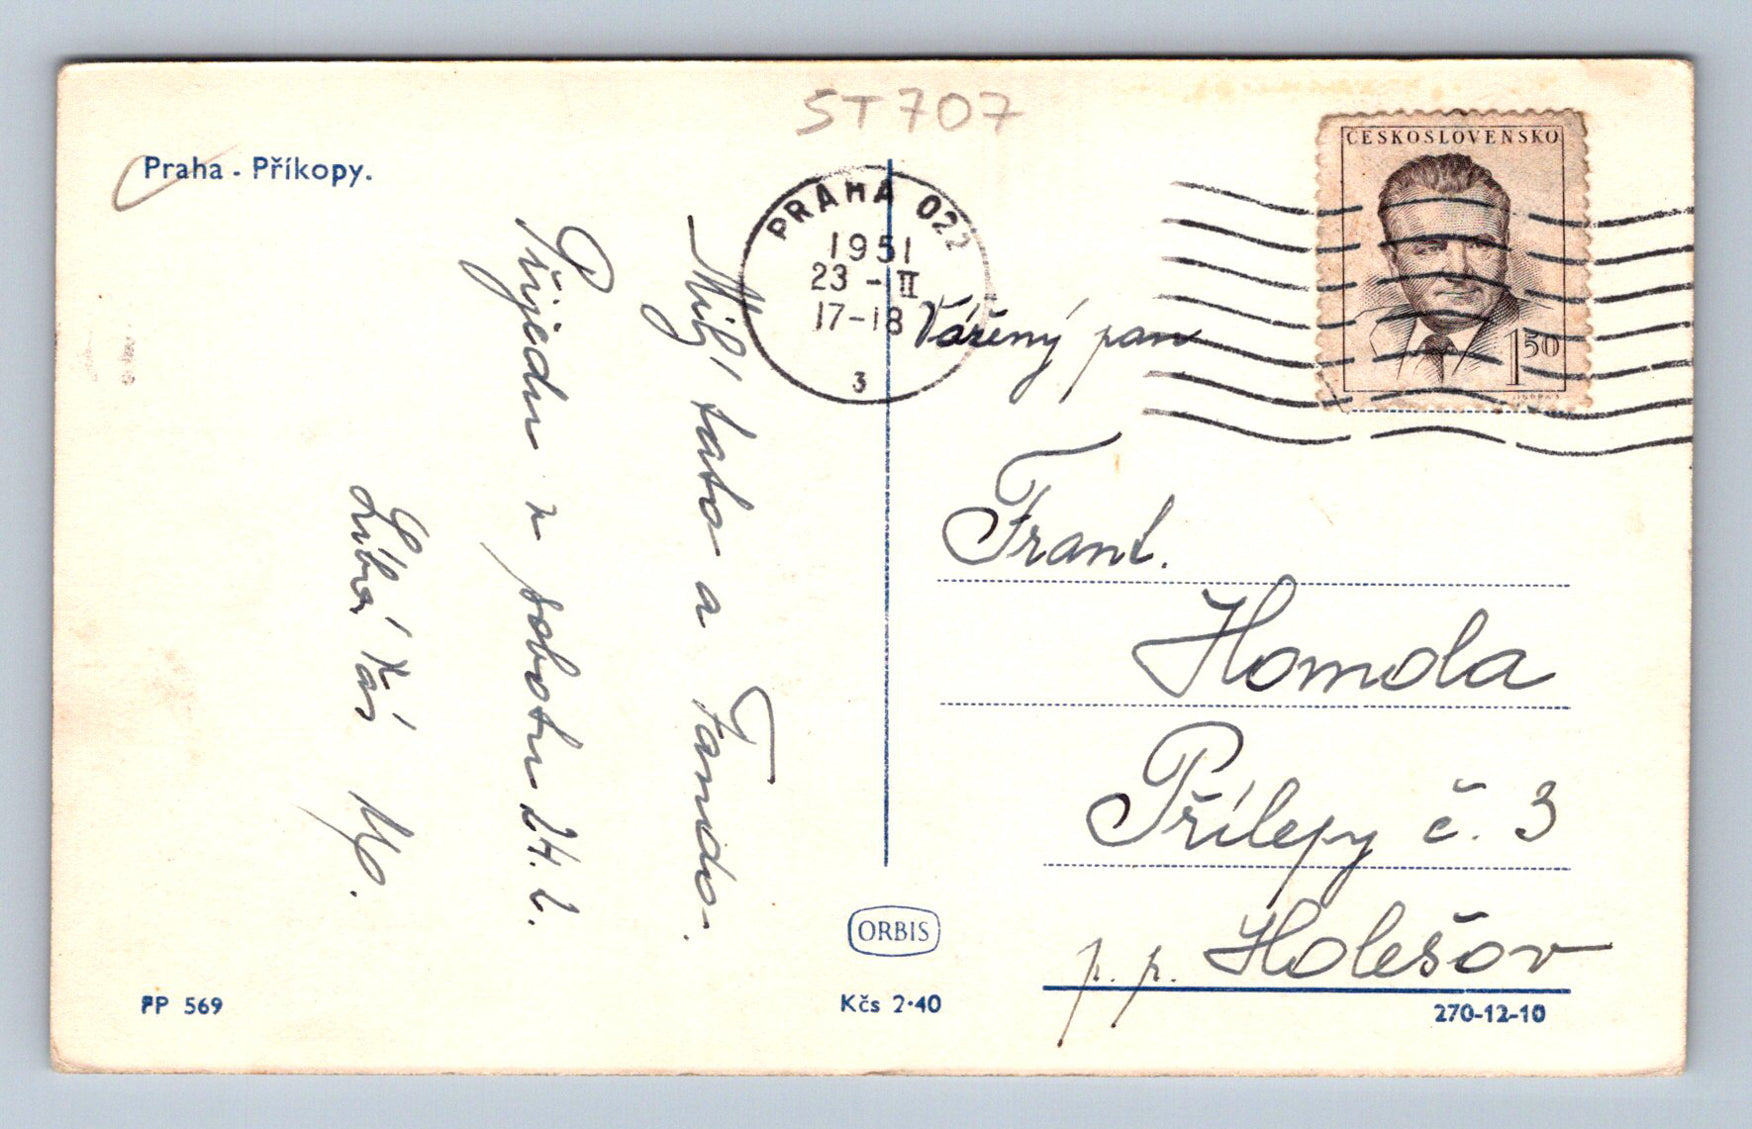 ST707
Praha - Příkopy.
ČESKOSLOVENSKO
1 50
PRAHA 022
1951
23 - II
17-18
3
Milý tato a Fando.
Přijedu v sobotu 24. 2.
Líbá Vás
Vážený pan
Frant.
Homola
Přílepy č. 3
p. p. Holešov
ORBIS
FP 569
Kčs 2·40
270-12-10